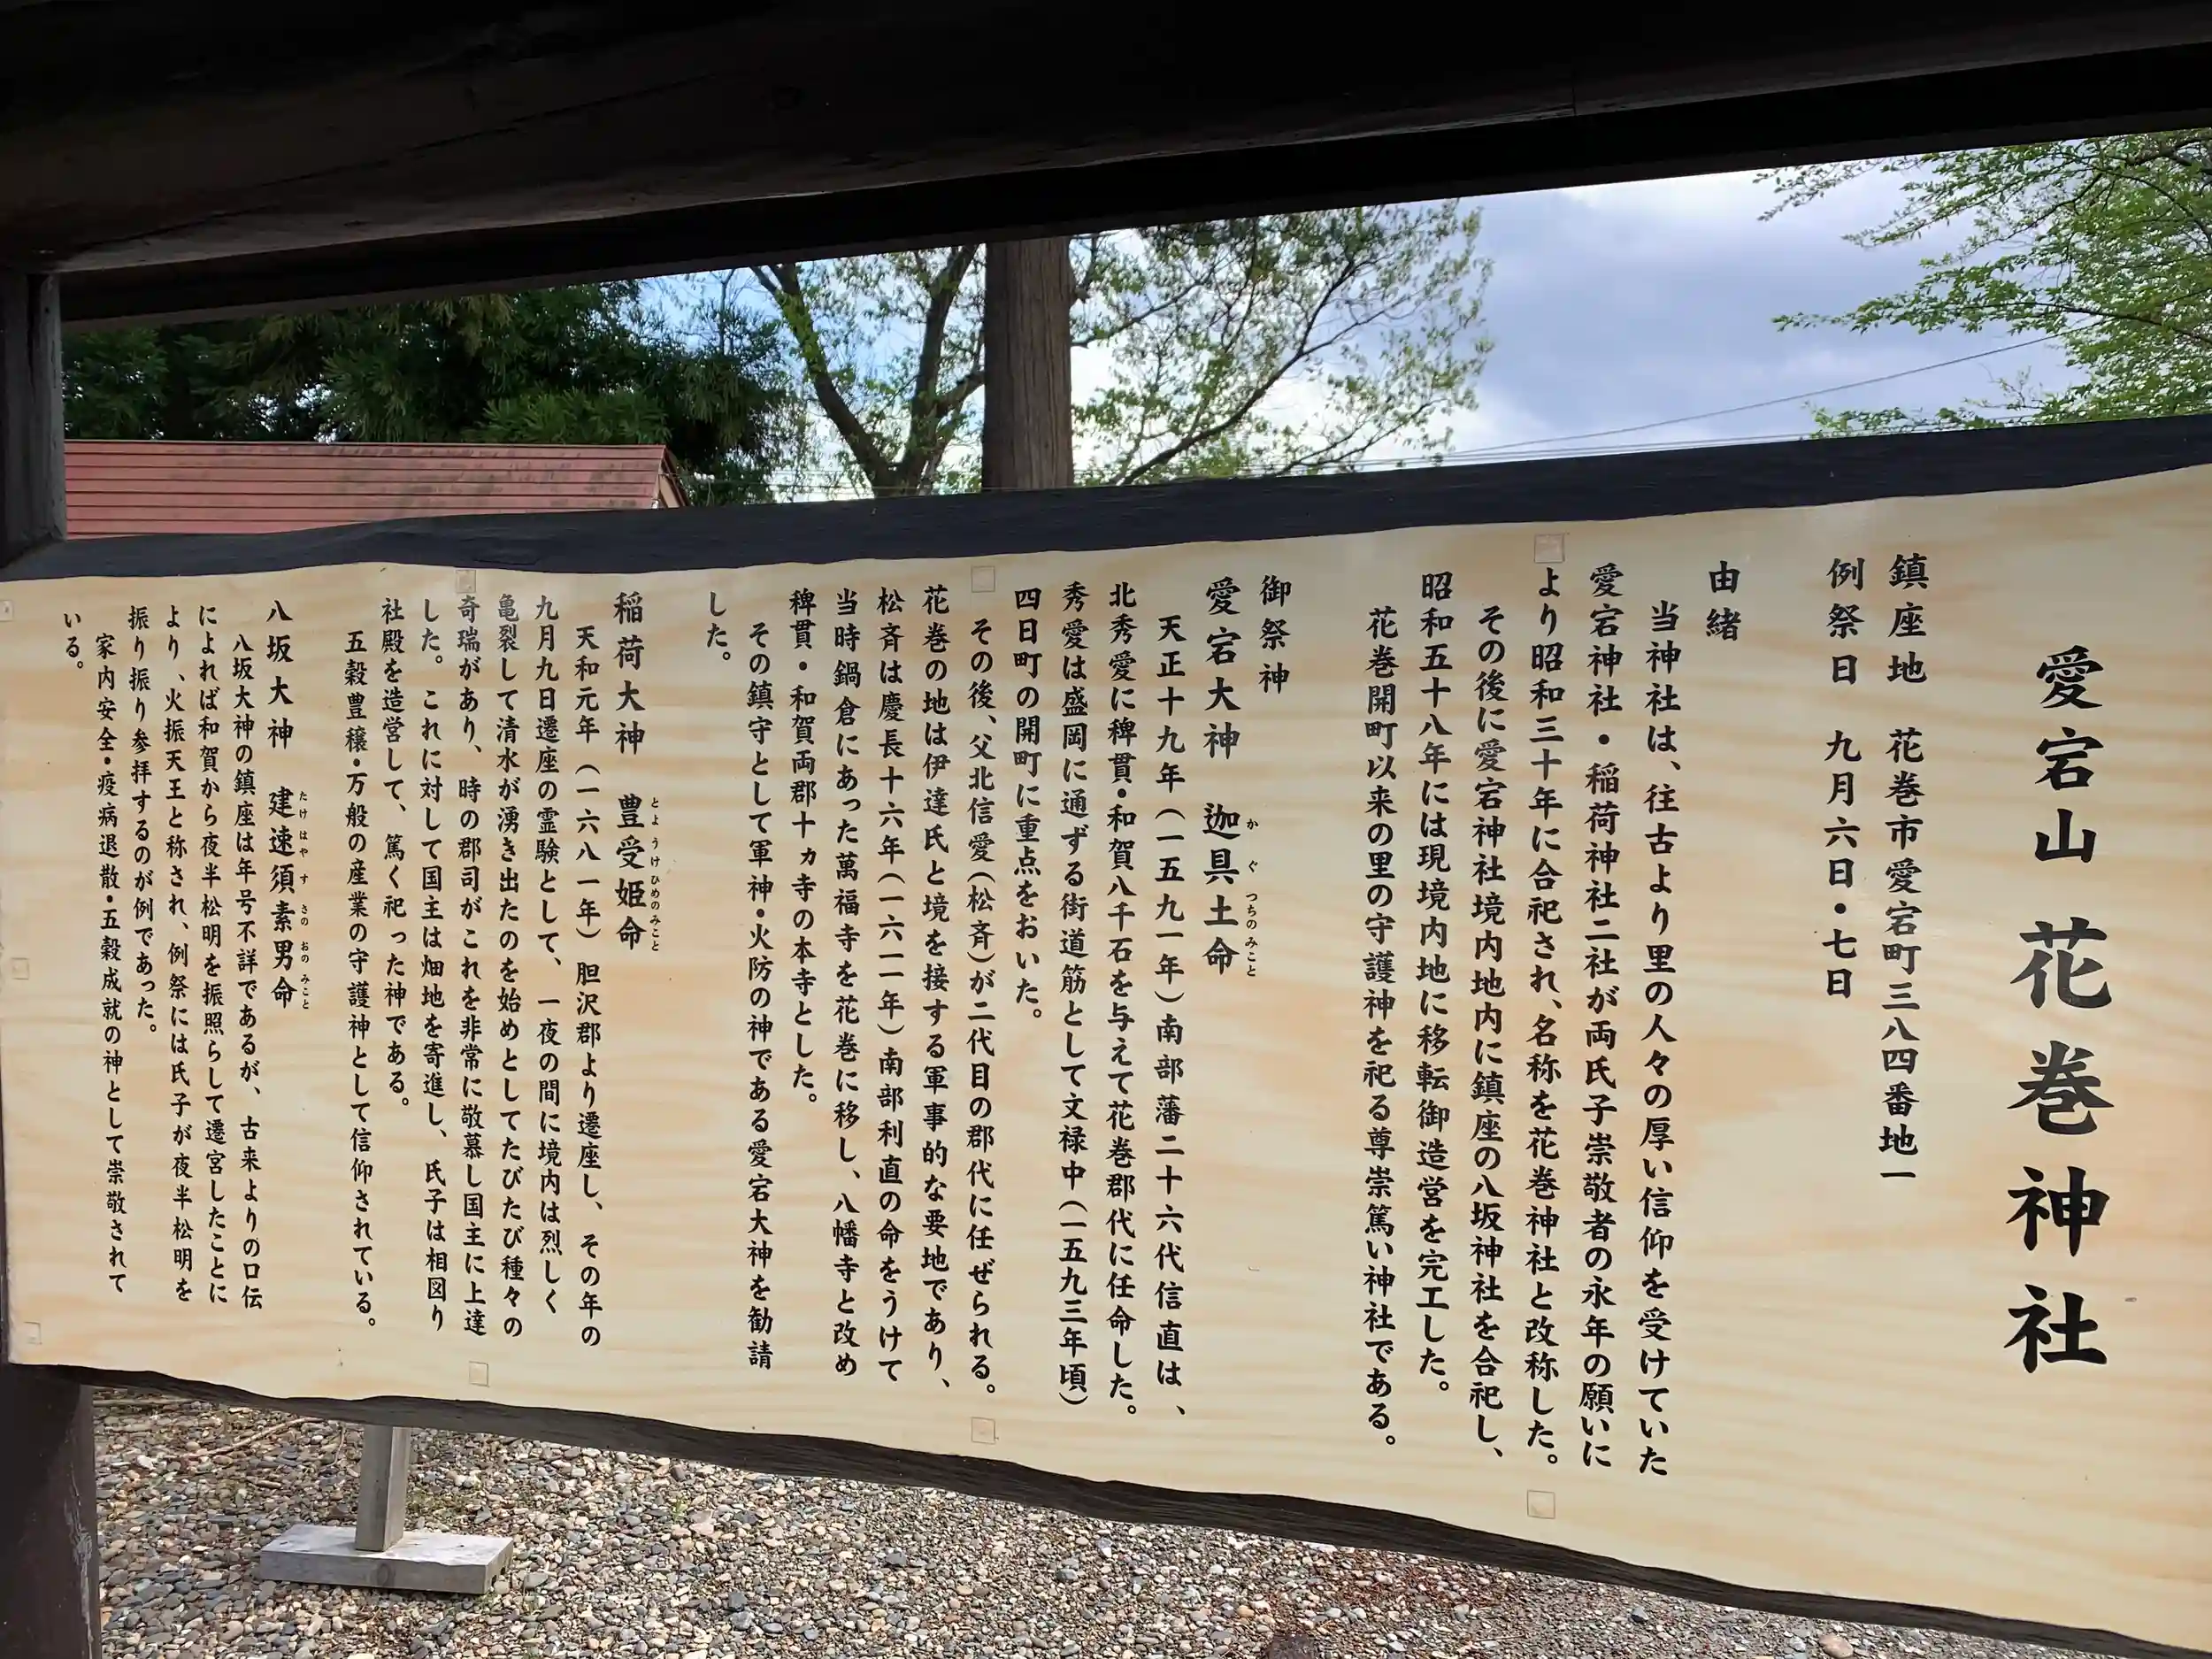 愛宕山 花巻神社
鎮座地 花巻市愛宕町三八四番地一
例祭日 九月六日・七日
由緒
当神社は、往古より里の人々の厚い信仰を受けていた
愛宕神社・稲荷神社二社が両氏子崇敬者の永年の願いに
より昭和三十年に合祀され、名称を花巻神社と改称した。
その後に愛宕神社境内地内に鎮座の八坂神社を合祀し、
昭和五十八年には現境内地に移転御造営を完工した。
花巻開町以来の里の守護神を祀る尊崇篤い神社である。
御祭神
愛宕大神 迦具土命
か ぐ つちのみこと
天正十九年(一五九一年)南部藩二十六代信直は、
北秀愛に稗貫・和賀八千石を与えて花巻郡代に任命した。
秀愛は盛岡に通ずる街道筋として文禄中(一五九三年頃)
四日町の開町に重点をおいた。
その後、父北信愛(松斉)が二代目の郡代に任ぜられる。
花巻の地は伊達氏と境を接する軍事的な要地であり、
松斉は慶長十六年(一六一一年)南部利直の命をうけて
当時鍋倉にあった萬福寺を花巻に移し、八幡寺と改め
稗貫・和賀両郡十ヵ寺の本寺とした。
その鎮守として軍神・火防の神である愛宕大神を勧請
した。
稲荷大神 豊受姫命
とようけひめのみこと
天和元年(一六八一年)胆沢郡より遷座し、その年の
九月九日遷座の霊験として、一夜の間に境内は烈しく
亀裂して清水が湧き出たのを始めとしてたびたび種々の
奇瑞があり、時の郡司がこれを非常に敬慕し国主に上達
した。これに対して国主は畑地を寄進し、氏子は相図り
社殿を造営して、篤く祀った神である。
五穀豊穣・万般の産業の守護神として信仰されている。
八坂大神 建速須素男命
たけ はや す さの おの みこと
八坂大神の鎮座は年号不詳であるが、古来よりの口伝
によれば和賀から夜半松明を振照らして遷宮したことに
より、火振天王と称され、例祭には氏子が夜半松明を
振り振り参拝するのが例であった。
家内安全・疫病退散・五穀成就の神として崇敬されて
いる。